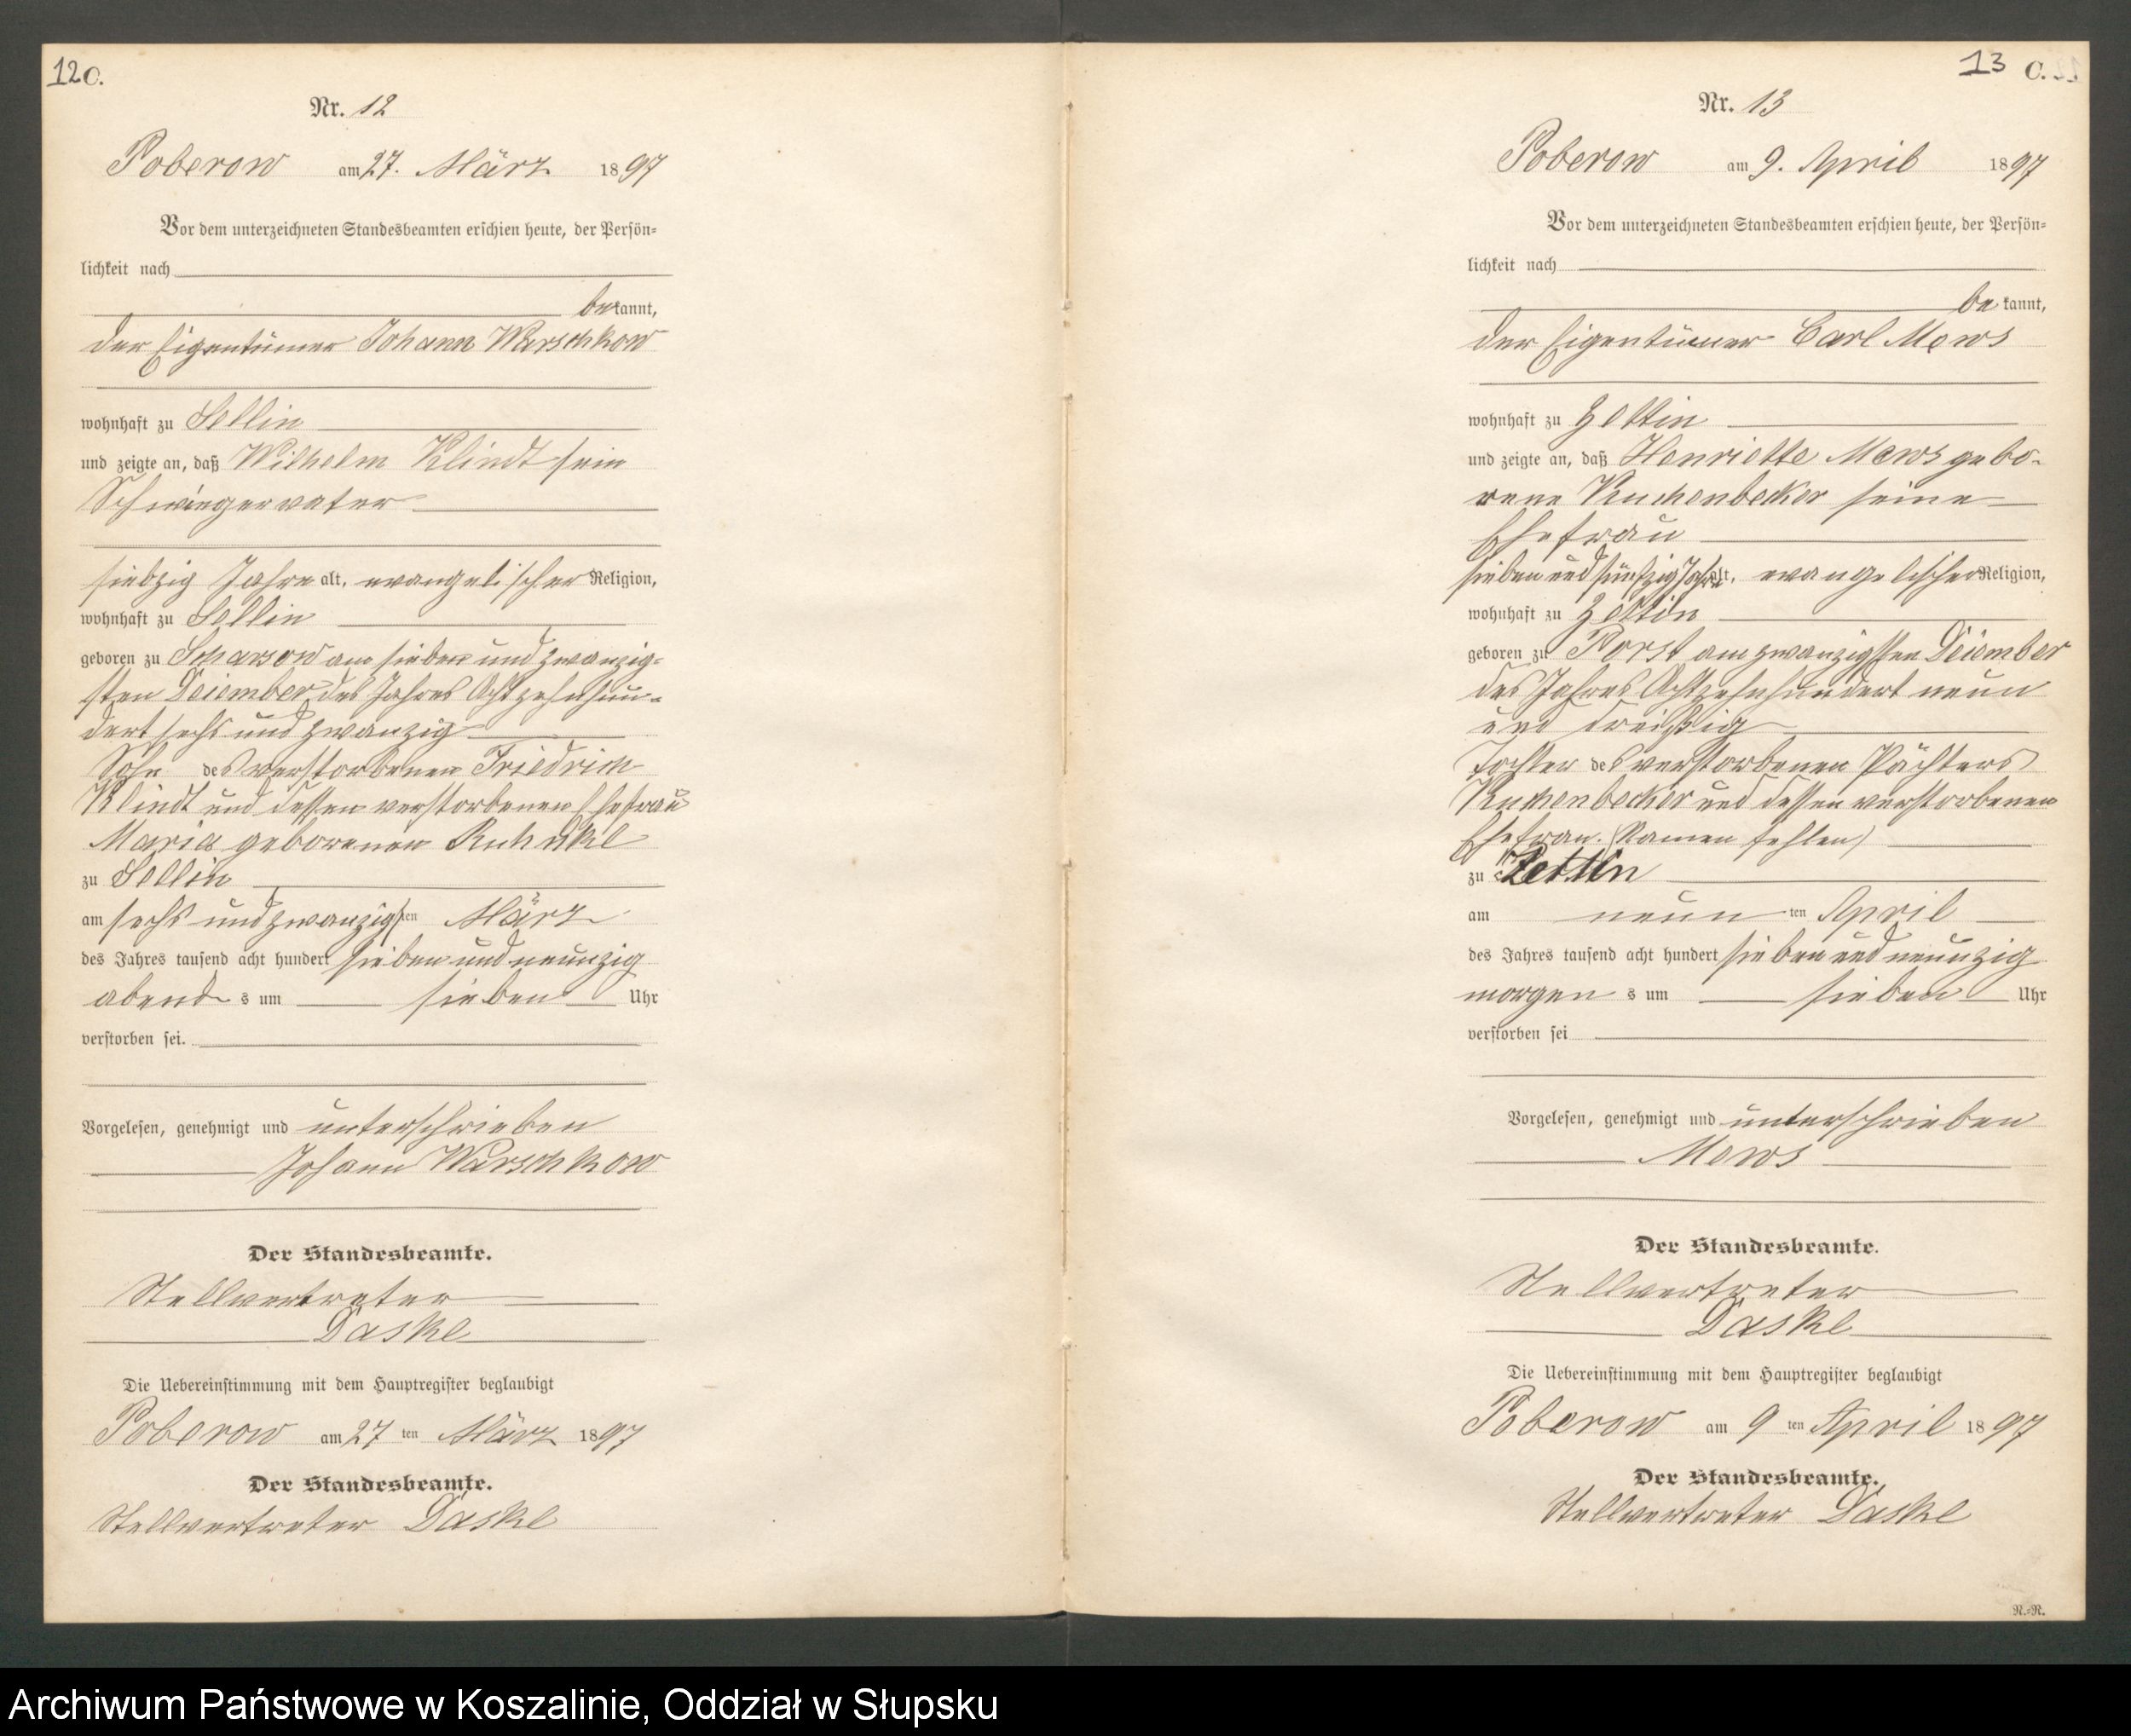 12 C.
Nr. 12
Poberow am 27. März 1897
Vor dem unterzeichneten Standesbeamten erschien heute, der Persön-
lichkeit nach
bekannt,
der Eigentümer Johann Warschkow
wohnhaft zu Sellin
und zeigte an, daß Wilhelm Klindt sein
Schwiegervater
siebzig Jahre alt, evangelischer Religion,
wohnhaft zu Sellin
geboren zu Scharsow am sieben und zwanzig-
sten Dezember des Jahres Achtzehnhun-
dert sechs und zwanzig
Sohn des verstorbenen Friedrich
Klindt und dessen verstorbenen Ehefrau
Maria geborenen
zu Sellin
am sechs und zwanzigsten März
des Jahres tausend acht hundert sieben und neunzig
abends um sieben Uhr
verstorben sei.
Vorgelesen, genehmigt und unterschrieben
Johann Warschkow
Der Standesbeamte.
Stellvertreter
Daske
Die Uebereinstimmung mit dem Hauptregister beglaubigt
Poberow am 27 ten März 1897
Der Standesbeamte.
Stellvertreter Daske
13 C.
Nr. 13
Poberow am 9. April 1897
Vor dem unterzeichneten Standesbeamten erschien heute, der Persön-
lichkeit nach
bekannt,
der Eigentümer Carl Mews
wohnhaft zu Zettin
und zeigte an, daß Henriette Mews gebo-
rene Kuchenbecker seine
Ehefrau
sieben und fünfzig Jahre alt, evangelischer Religion,
wohnhaft zu Zettin
geboren zu Porst am zwanzigsten Dezember
des Jahres Achtzehnhundert neun
und dreißig
Tochter des verstorbenen Pächters
Kuchenbecker und dessen verstorbenen
Ehefrau. (Namen fehlen)
zu Zettin
am neunten April
des Jahres tausend acht hundert sieben und neunzig
morgens um sieben Uhr
verstorben sei
Vorgelesen, genehmigt und unterschrieben
Mews
Der Standesbeamte.
Stellvertreter
Daske
Die Uebereinstimmung mit dem Hauptregister beglaubigt
Poberow am 9 ten April 1897
Der Standesbeamte.
Stellvertreter Daske
N.-N.
Archiwum Państwowe w Koszalinie, Oddział w Słupsku